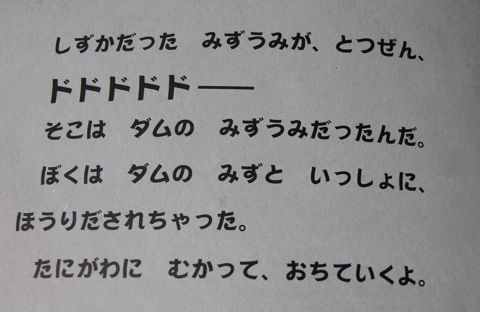 しずかだった　みずうみが、とつぜん、
ドドドドド――
そこは　ダムの　みずうみだったんだ。
ぼくは　ダムの　みずと　いっしょに、
ほうりだされちゃった。
たにがわに　むかって、おちていくよ。